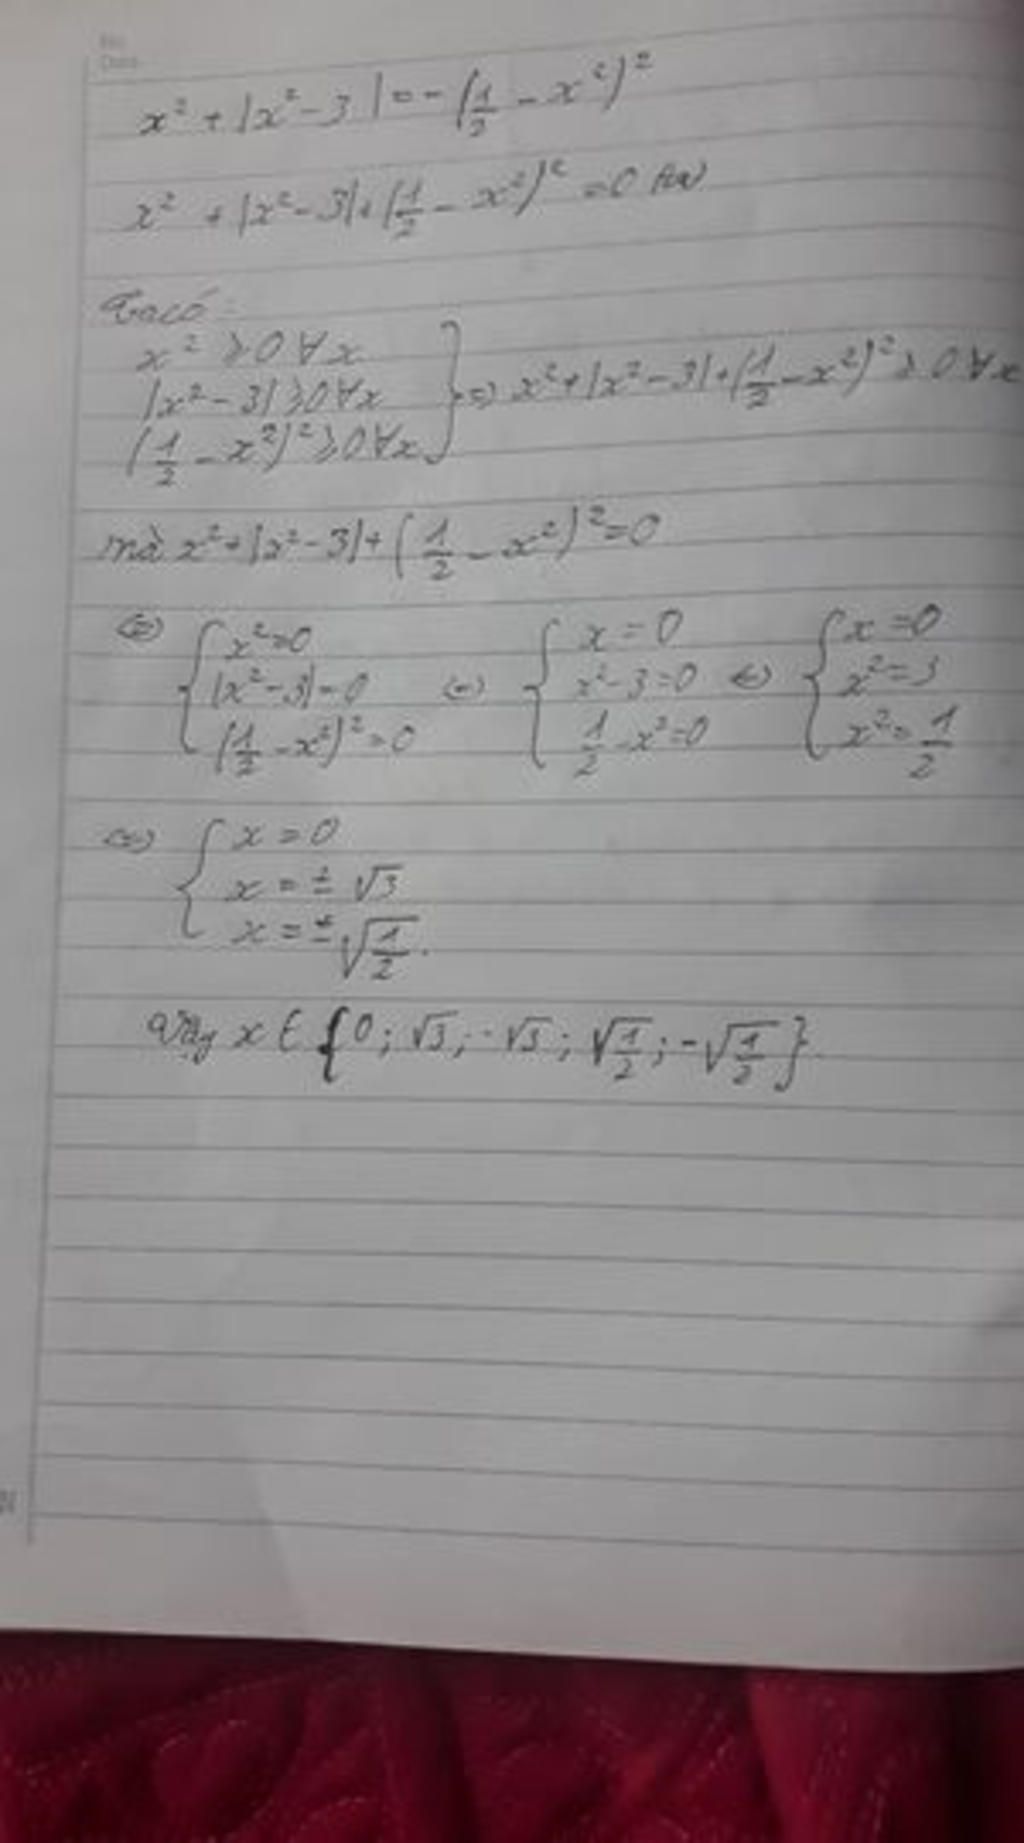 No.
Date
x² + |x² - 3| = - (1/2 - x²)²
x² + |x² - 3| + (1/2 - x²)² = 0
Ta có:
x² ≥ 0 ∀x
|x² - 3| ≥ 0 ∀x
(1/2 - x²)² ≥ 0 ∀x } => x² + |x² - 3| + (1/2 - x²)² ≥ 0 ∀x
mà x² + |x² - 3| + (1/2 - x²)² = 0
<=> { x² = 0 |x² - 3| = 0 (1/2 - x²)² = 0 <=> { x = 0 x² - 3 = 0 1/2 - x² = 0 <=> { x = 0 x² = 3 x² = 1/2
<=> { x = 0
x = ± √3
x = ± √1/2.
Vậy x ∈ {0; √3; -√3; √1/2; -√1/2}.